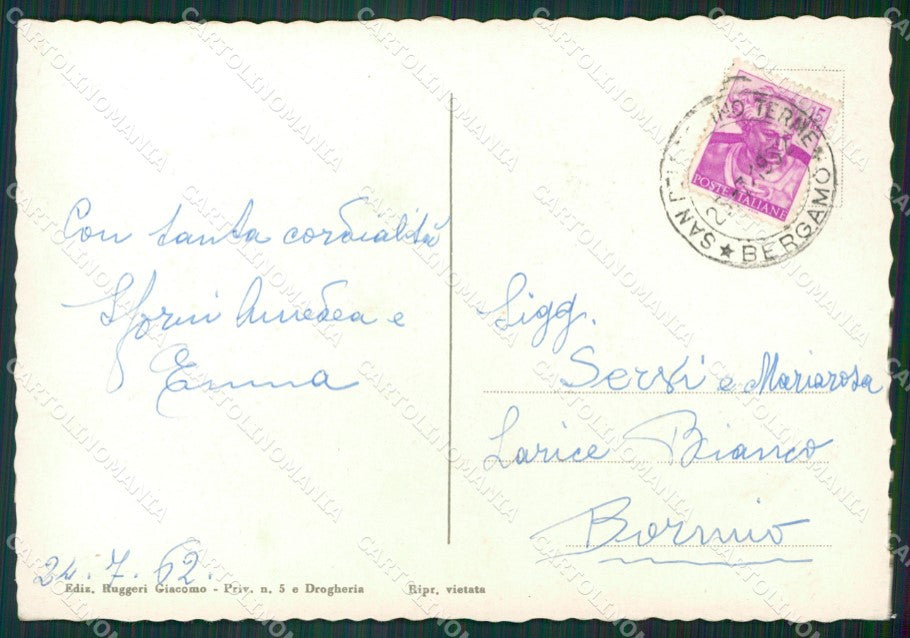 Con tanta cordialità
Sforni Amedea e
Emma
24.7.62.
Ediz. Ruggeri Giacomo - Priv. n. 5 e Drogheria
Ripr. vietata
15
POSTE ITALIANE
INO TERME
SAN
BERGAMO
Sigg.
Sersi e Mariarosa
Larice Bianco
Bormio
CARTOLINOMANIA